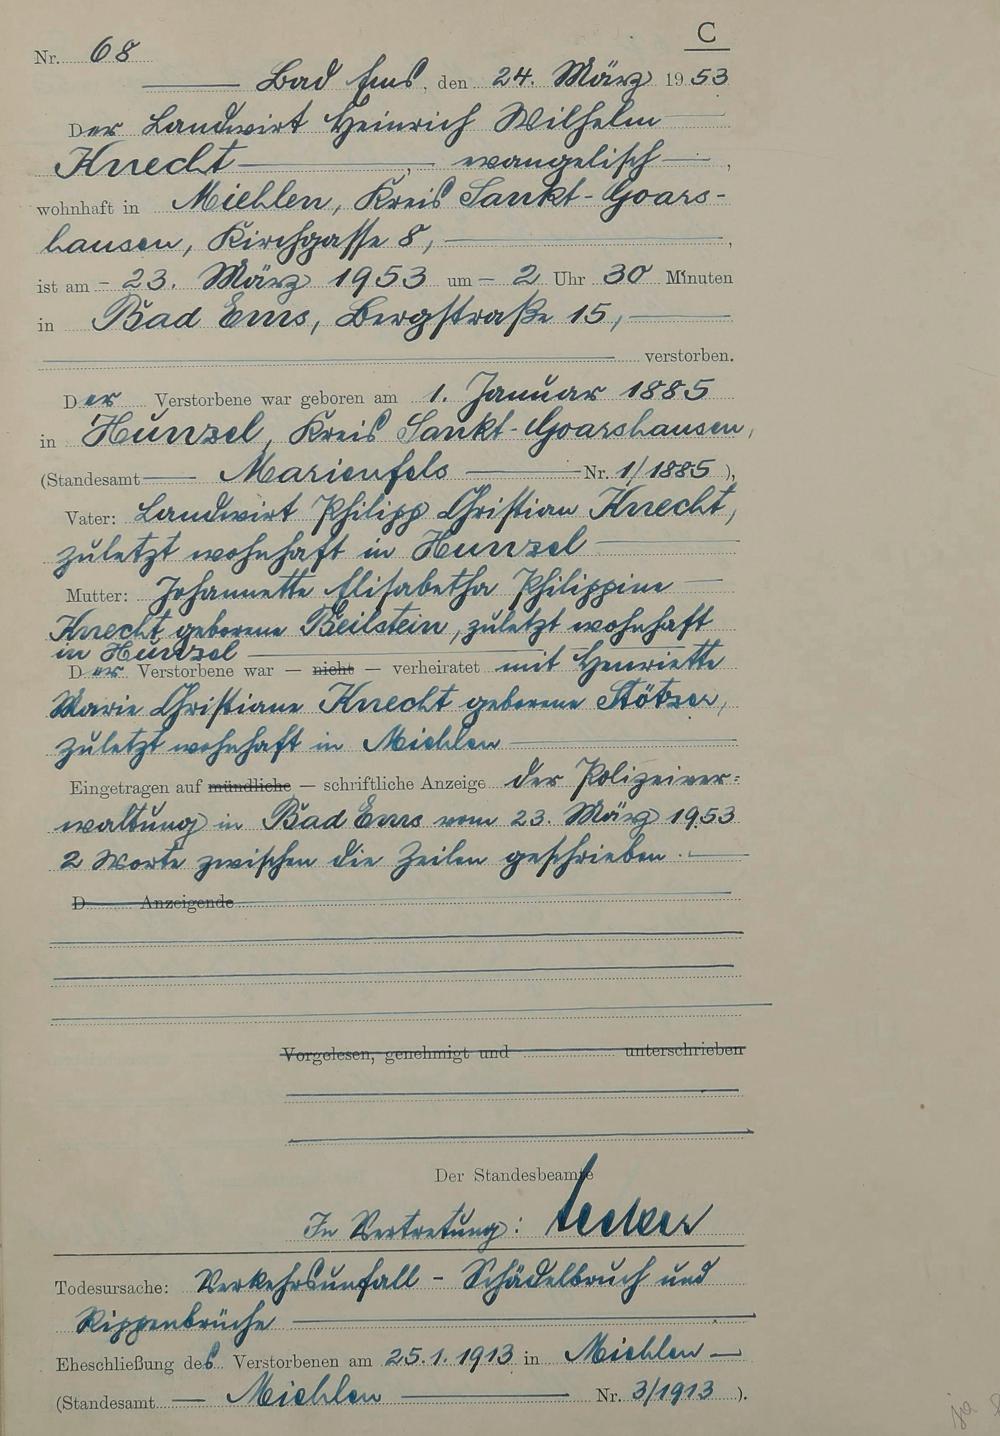 C
Nr. 68
Bad Ems, den 24. März 1953
Der Landwirt Heinrich Wilhelm
Knecht, evangelisch,
wohnhaft in Miehlen, Kreis Sankt-Goars-
hausen, Kirchgasse 8,
ist am 23. März 1953 um 2 Uhr 30 Minuten
in Bad Ems, Bergstraße 15,
verstorben.
Der Verstorbene war geboren am 1. Januar 1885
in Hunzel, Kreis Sankt-Goarshausen,
(Standesamt Marienfels Nr. 1/1885),
Vater: Landwirt Philipp Christian Knecht,
zuletzt wohnhaft in Hunzel
Mutter: Johannette Elisabetha Philippine
Knecht geborene Beilstein, zuletzt wohnhaft
in Hunzel
Der Verstorbene war — nicht — verheiratet mit Henriette
Marie Christiane Knecht geborene Stötzer,
zuletzt wohnhaft in Miehlen
Eingetragen auf mündliche — schriftliche Anzeige der Polizeiver=
waltung in Bad Ems vom 23. März 1953
2 Worte zwischen die Zeilen geschrieben.
D Anzeigende
Vorgelesen, genehmigt und unterschrieben
Der Standesbeamte
In Vertretung:
Todesursache: Verkehrsunfall - Schädelbruch und
Rippenbrüche
Eheschließung des Verstorbenen am 25.1.1913 in Miehlen
(Standesamt Miehlen Nr. 3/1913).